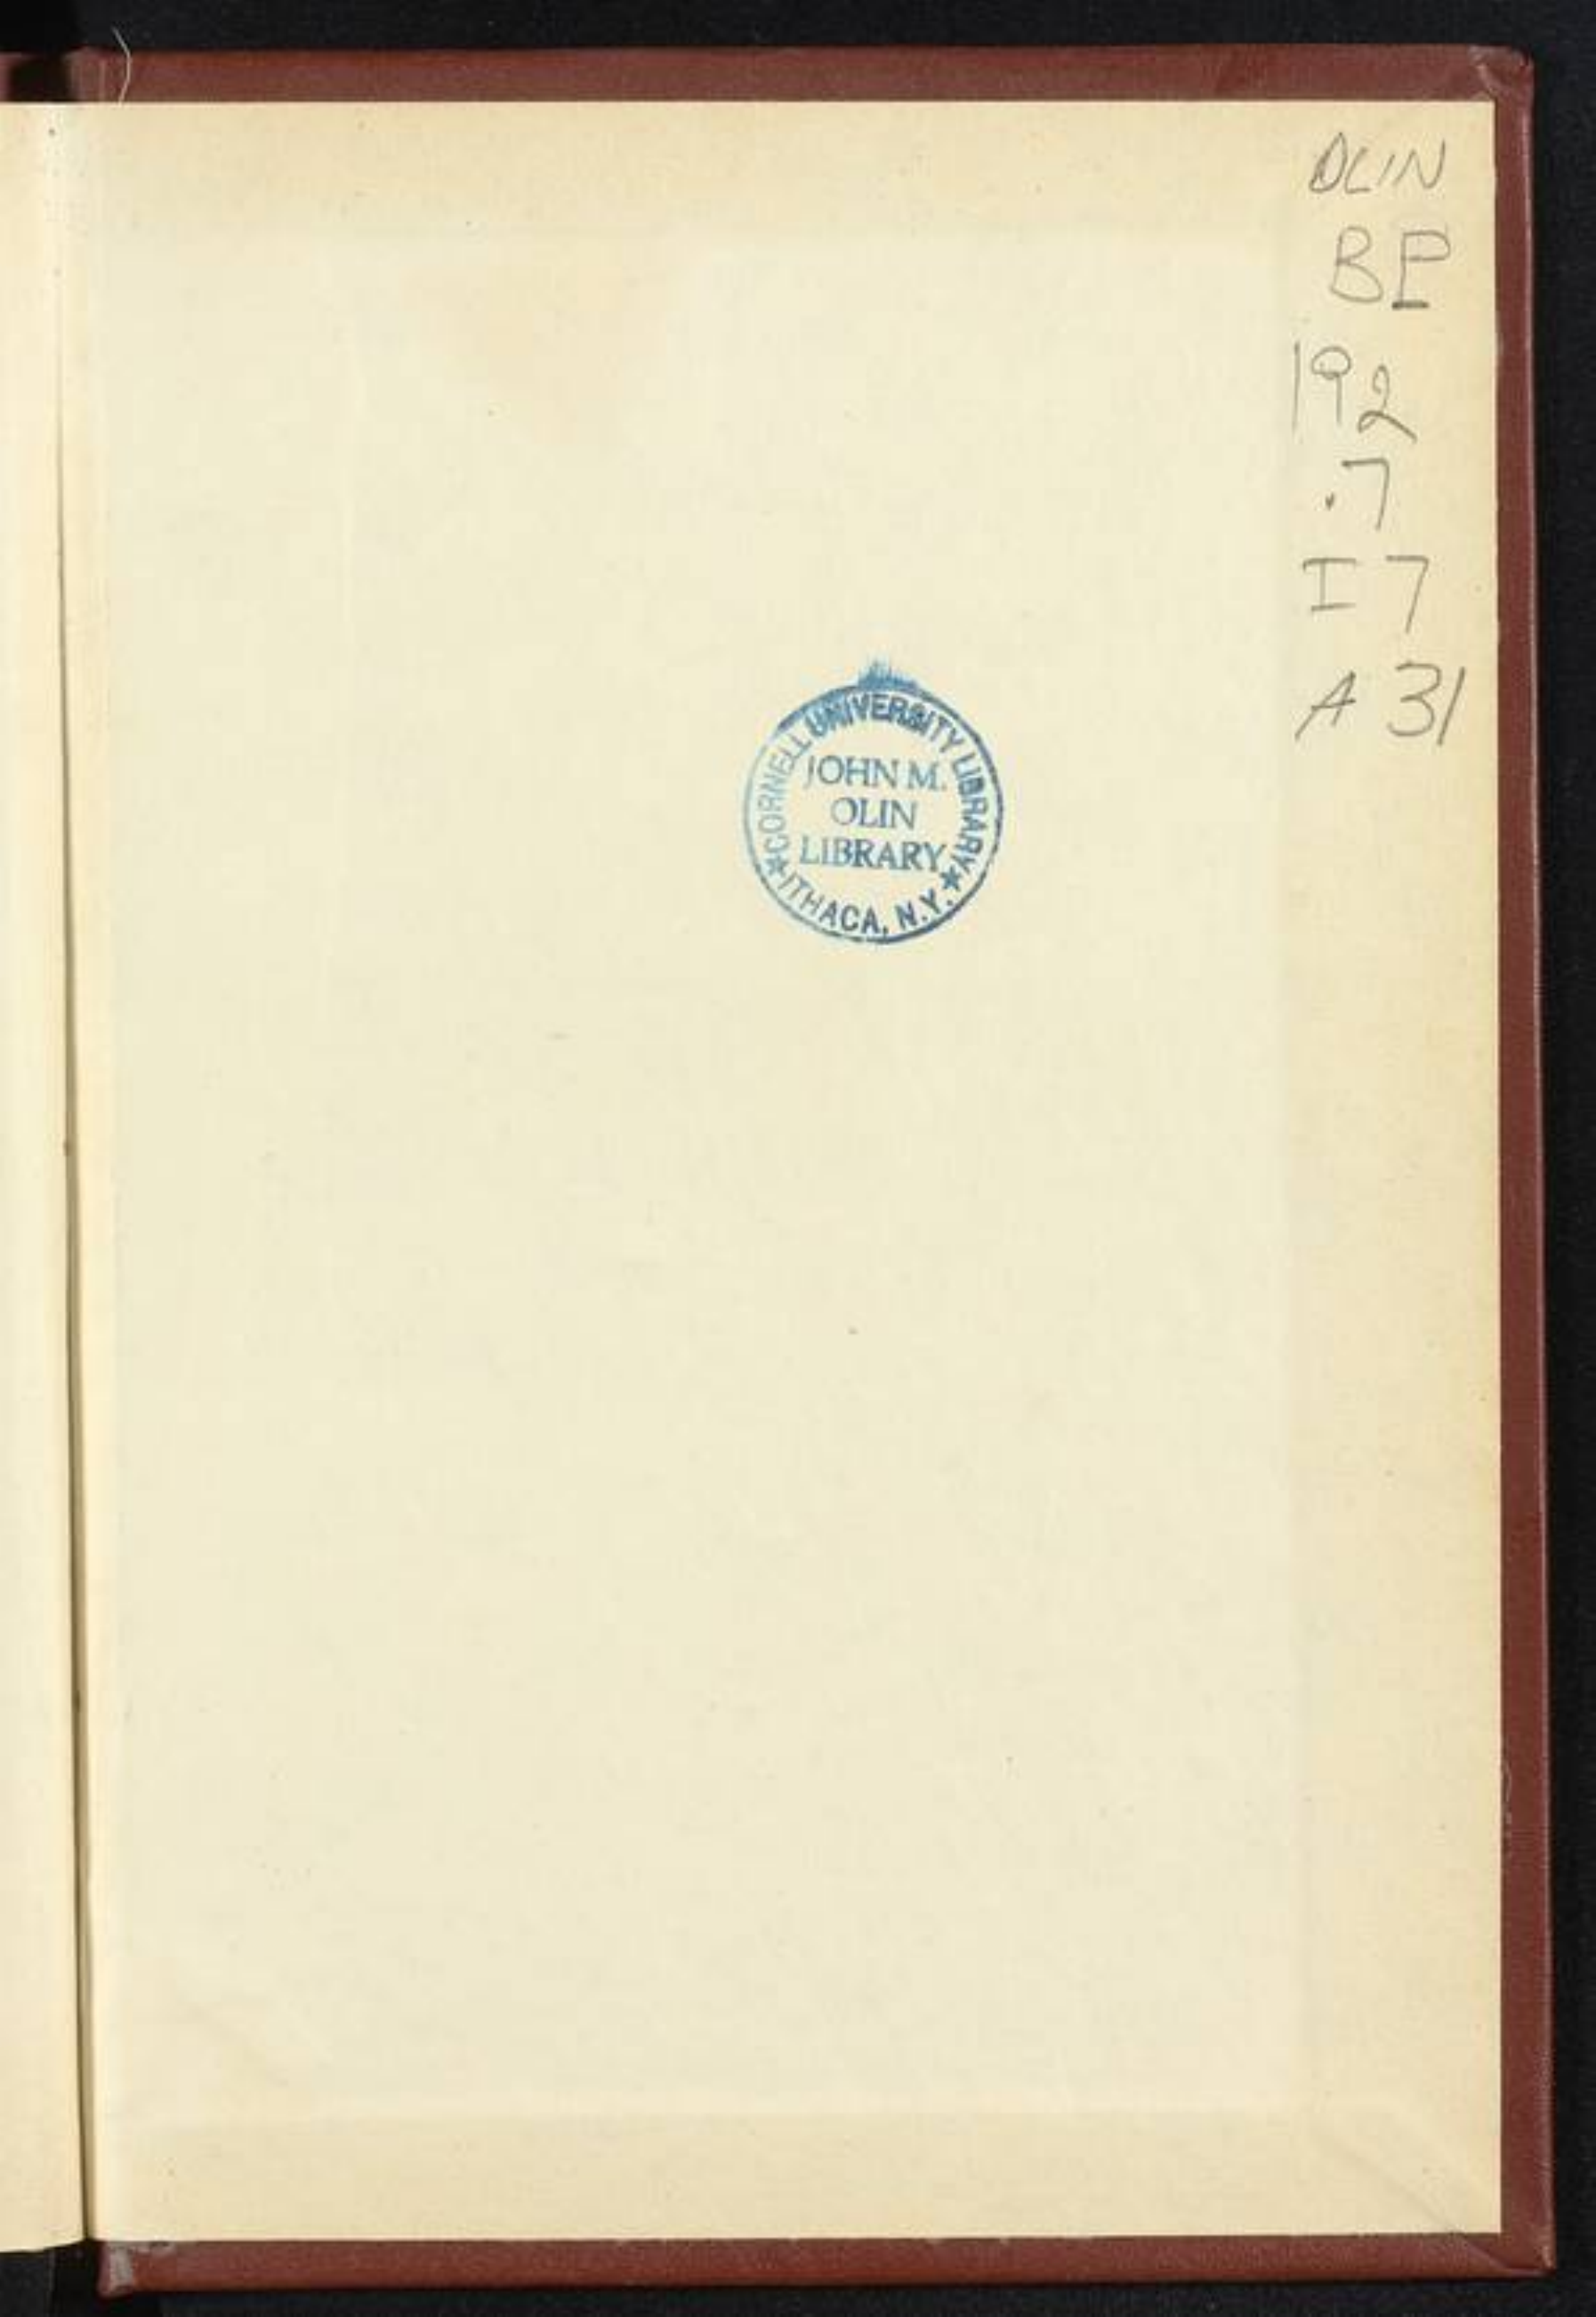 OLIN
BP
192
.7
I7
A31
★CORNELL UNIVERSITY LIBRARY★
JOHN M.
OLIN
LIBRARY
ITHACA, N.Y.